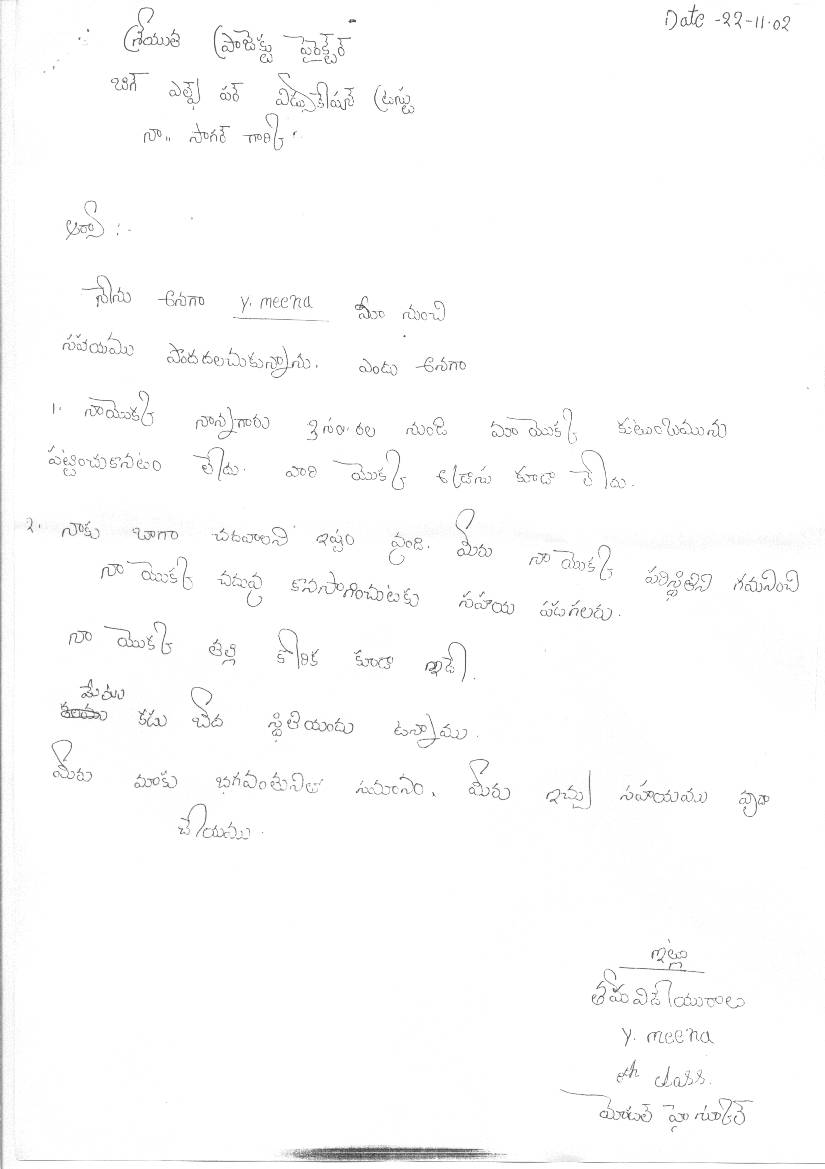 Date -22-11-02
శ్రీయుత ప్రాజెక్టు డైరెక్టర్
బిగ్ ఎల్ఫ్ ఫర్ ఎడ్యుకేషన్ ట్రస్టు
నా.. సాగర్ గార్కి.
ఆర్యా :-
నేను అనగా y. meena మీ నుంచి
సహయము పొందదలచుకున్నాను. ఎందు అనగా
1. నాయొక్క నాన్నగారు 3 సం.రల నుండి మా యొక్క కుటుంబమును
పట్టించుకొనటం లేదు. వారి యొక్క ఆడ్రాసు కూడా లేదు.
2. నాకు బాగా చదవాలని ఇష్టం వుంది. మీరు నా యొక్క పరిస్థితిని గమనించి
నా యొక్క చదువు కొనసాగించుటకు సహాయ పడగలరు.
నా యొక్క తల్లి కోరిక కుడా ఇదే.
మేము కడు బీద స్థితియందు ఉన్నాము.
మీరు మాకు భగవంతునితో సమానం. మీరు ఇచ్చు సహాయము వృధా
చేయము.
ఇట్లు
తమ విదేయురాలు
y. meena
th class.
మోడల్ హై స్కూల్